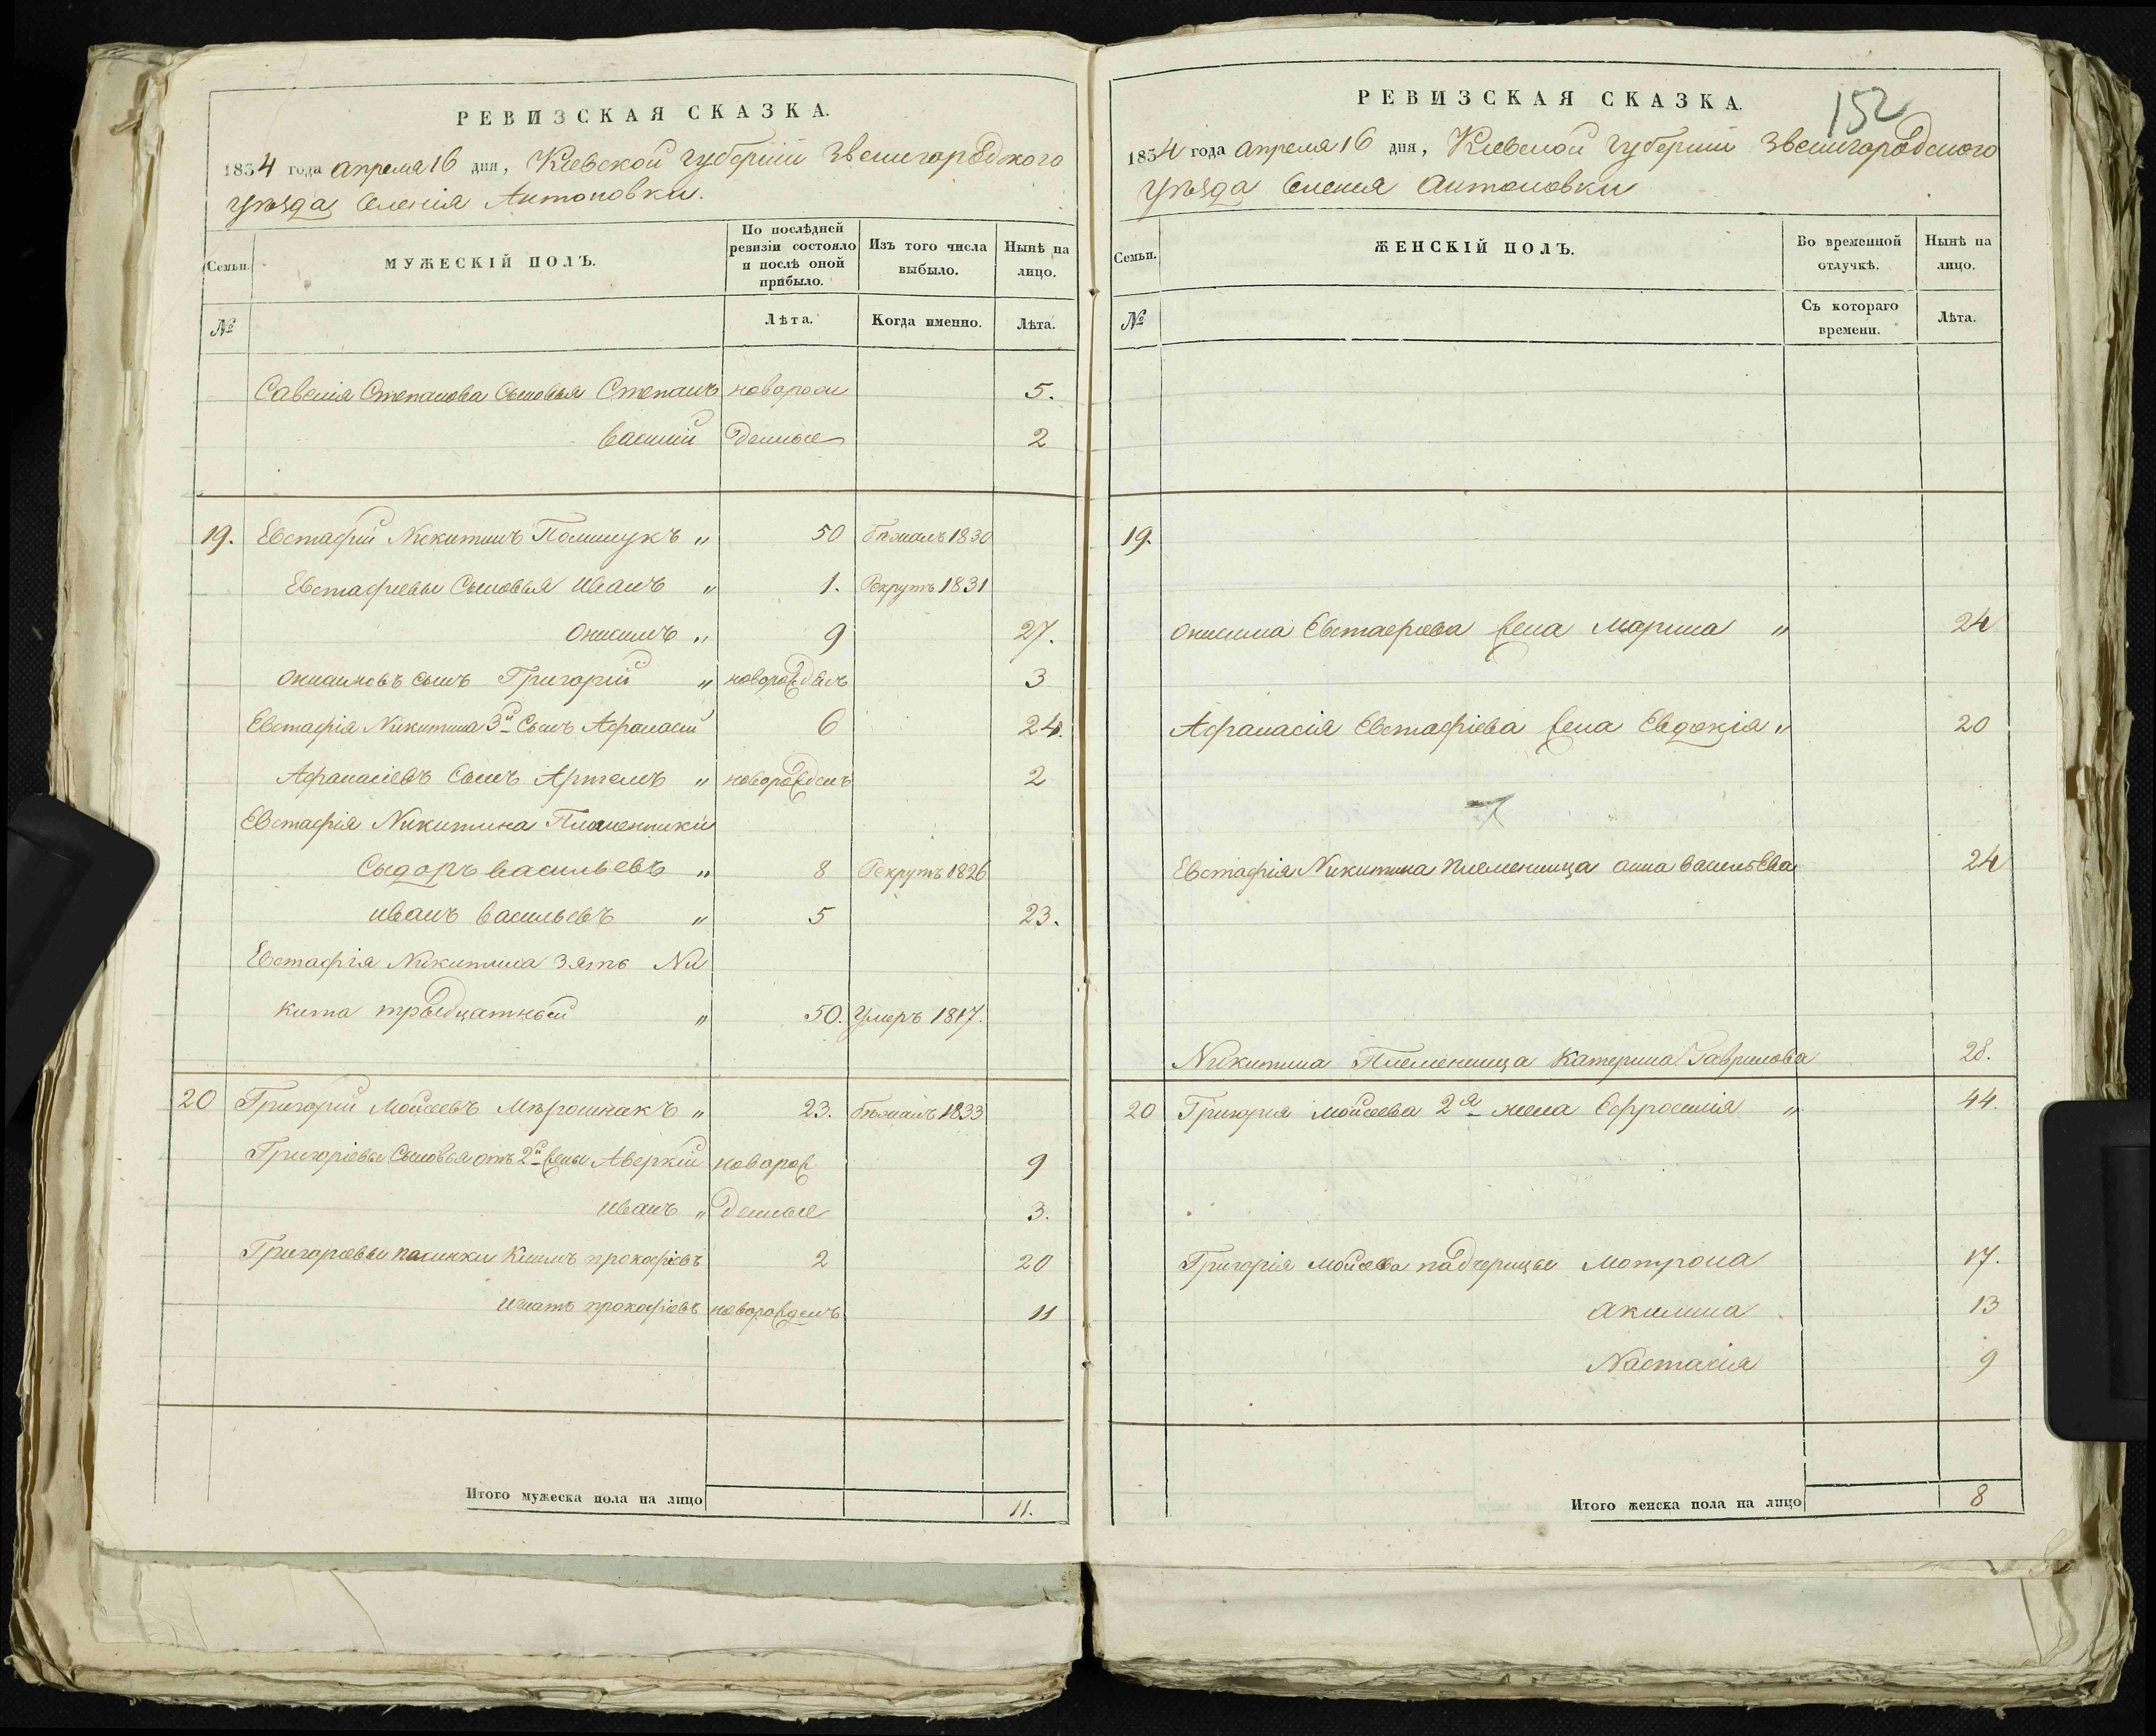 РЕВИЗСКАЯ СКАЗКА.
1834 года апреля 16 дня, Кіевской губерніи Звенигородского
уѣзда Селенія Антоновки.
Семьи.
МУЖЕСКІЙ ПОЛЪ.
По послѣдней ревизіи состояло и послѣ оной прибыло.
Изъ того числа выбыло.
Нынѣ на лицо.
№
Лѣта.
Когда именно.
Лѣта.
Савелія Степанова Сыновья Степанъ новорож 5.
Василий денные 2
19. Евстафій Никитинъ Полищукъ „ 50 бѣжалъ 1830
Евстафіевы Сыновья Иванъ „ 1. Рекрутъ 1831
Онисимъ „ 9 27.
Онисимовъ сынъ Григорій „ новорожденъ 3
Евстафія Никитина 3й Сынъ Афанасій 6 24.
Афанасіевъ Сынъ Артемъ „ новорожденъ 2
Евстафія Никитина Племенники
Сыдоръ Васильевъ „ 8 Рекрутъ 1826
Иванъ Васильевъ „ 5 23.
Евстафія Никитина Зять Ни
кита трыдцатный „ 50. Умеръ 1817.
20 Григорій Мойсеевъ Мѣрошникъ „ 23. бѣжалъ 1833
Григоріевы Сыновья отъ 2й жены Аверкій новорож 9
Иванъ „ денные 3.
Григоріевы пасинки Климъ прокофіевъ 2 20
Игнатъ прокофіевъ новорожденъ 11
Итого мужеска пола на лицо 11.
152
РЕВИЗСКАЯ СКАЗКА.
1834 года апреля 16 дня, Кіевской Губерніи Звенигородского
уѣзда Селенія Антоновки
Семьи.
ЖЕНСКІЙ ПОЛЪ.
Во временной отлучкѣ.
Нынѣ на лицо.
№
Съ котораго времени.
Лѣта.
19.
Онисима Евстафіева жена Марина „ 24
Афанасія Евстафіева жена Евдокія „ 20
Евстафія Никитина племенница анна васильева 24
Никитина Племенница Катерина Гаврилова 28.
20 Григорія Мойсеева 2я жена Ефросинія „ 44.
Григорія Мойсеева падчерицы Мотрона 17.
Акилина 13
Настасія 9
Итого женска пола на лицо 8